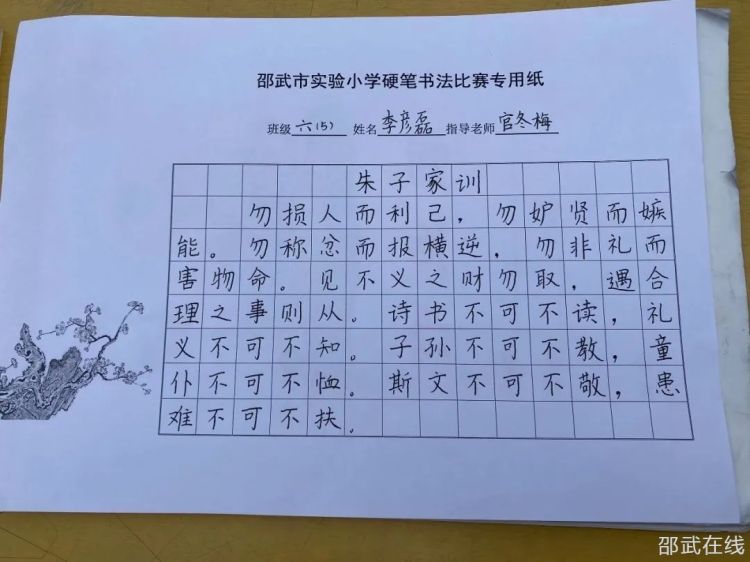 邵武市实验小学硬笔书法比赛专用纸
班级六(5) 姓名李彦磊 指导老师官冬梅
朱子家训
勿损人而利己，勿妒贤而嫉
能。勿称忿而报横逆，勿非礼而
害物命。见不义之财勿取，遇合
理之事则从。诗书不可不读，礼
义不可不知。子孙不可不教，童
仆不可不恤。斯文不可不敬，患
难不可不扶。
邵武在线